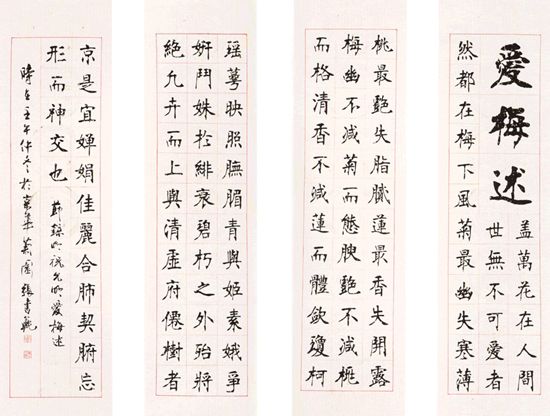 愛梅述
蓋萬花在人間
世無不可愛者
然都在梅下風菊最幽失寒薄
桃最艷失脂膩蓮最香失開露
梅幽不減菊而態腴艷不減桃
而格清香不減蓮而體斂瓊柯
瑶萼映照青與姬素娥爭
妍鬥姝於緋裒碧朽之外殆將
絕九卉而上與清虛府僊樹者
京是宜嬋娟佳麗合肺契腑忘
形而神交也
節錄明祝允明愛梅述
時在壬午仲冬於京華張書範